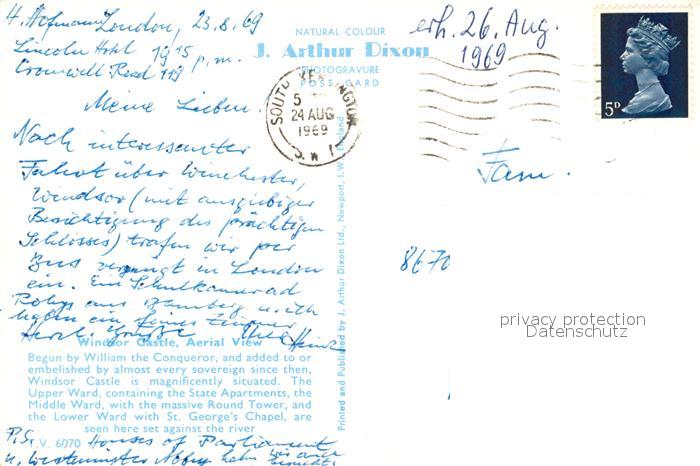 H. Hofmann London, 23.8.69
Lincoln Hotel 19 15 p.m.
Cromwell Road 119
Meine Lieben
Nach interessanter
Fahrt über Winchester,
Windsor (mit ausgiebiger
Besichtigung des prächtigen
Schlosses) trafen wir per
Bus vergnügt in London
ein. Ein Schulkamerad
aus Bamberg u. ich
haben ein feines Zimmer
Herzl. Grüsse Heinz
NATURAL COLOUR
J. Arthur Dixon
PHOTOGRAVURE
POST CARD
SOUTH KENSINGTON
5
24 AUG
1969
S.W.
erh. 26. Aug.
1969
5D
Fam.
8670
privacy protection
Datenschutz
Printed and Published by J. Arthur Dixon Ltd., Newport, I.W., England
Windsor Castle, Aerial View
Begun by William the Conqueror, and added to or
embelished by almost every sovereign since then,
Windsor Castle is magnificently situated. The
Upper Ward, containing the State Apartments, the
Middle Ward, with the massive Round Tower, and
the Lower Ward with St. George's Chapel, are
seen here set against the river
V. 6070
P.S. Houses of Parliament
u. Westminster Abbey haben wir auch